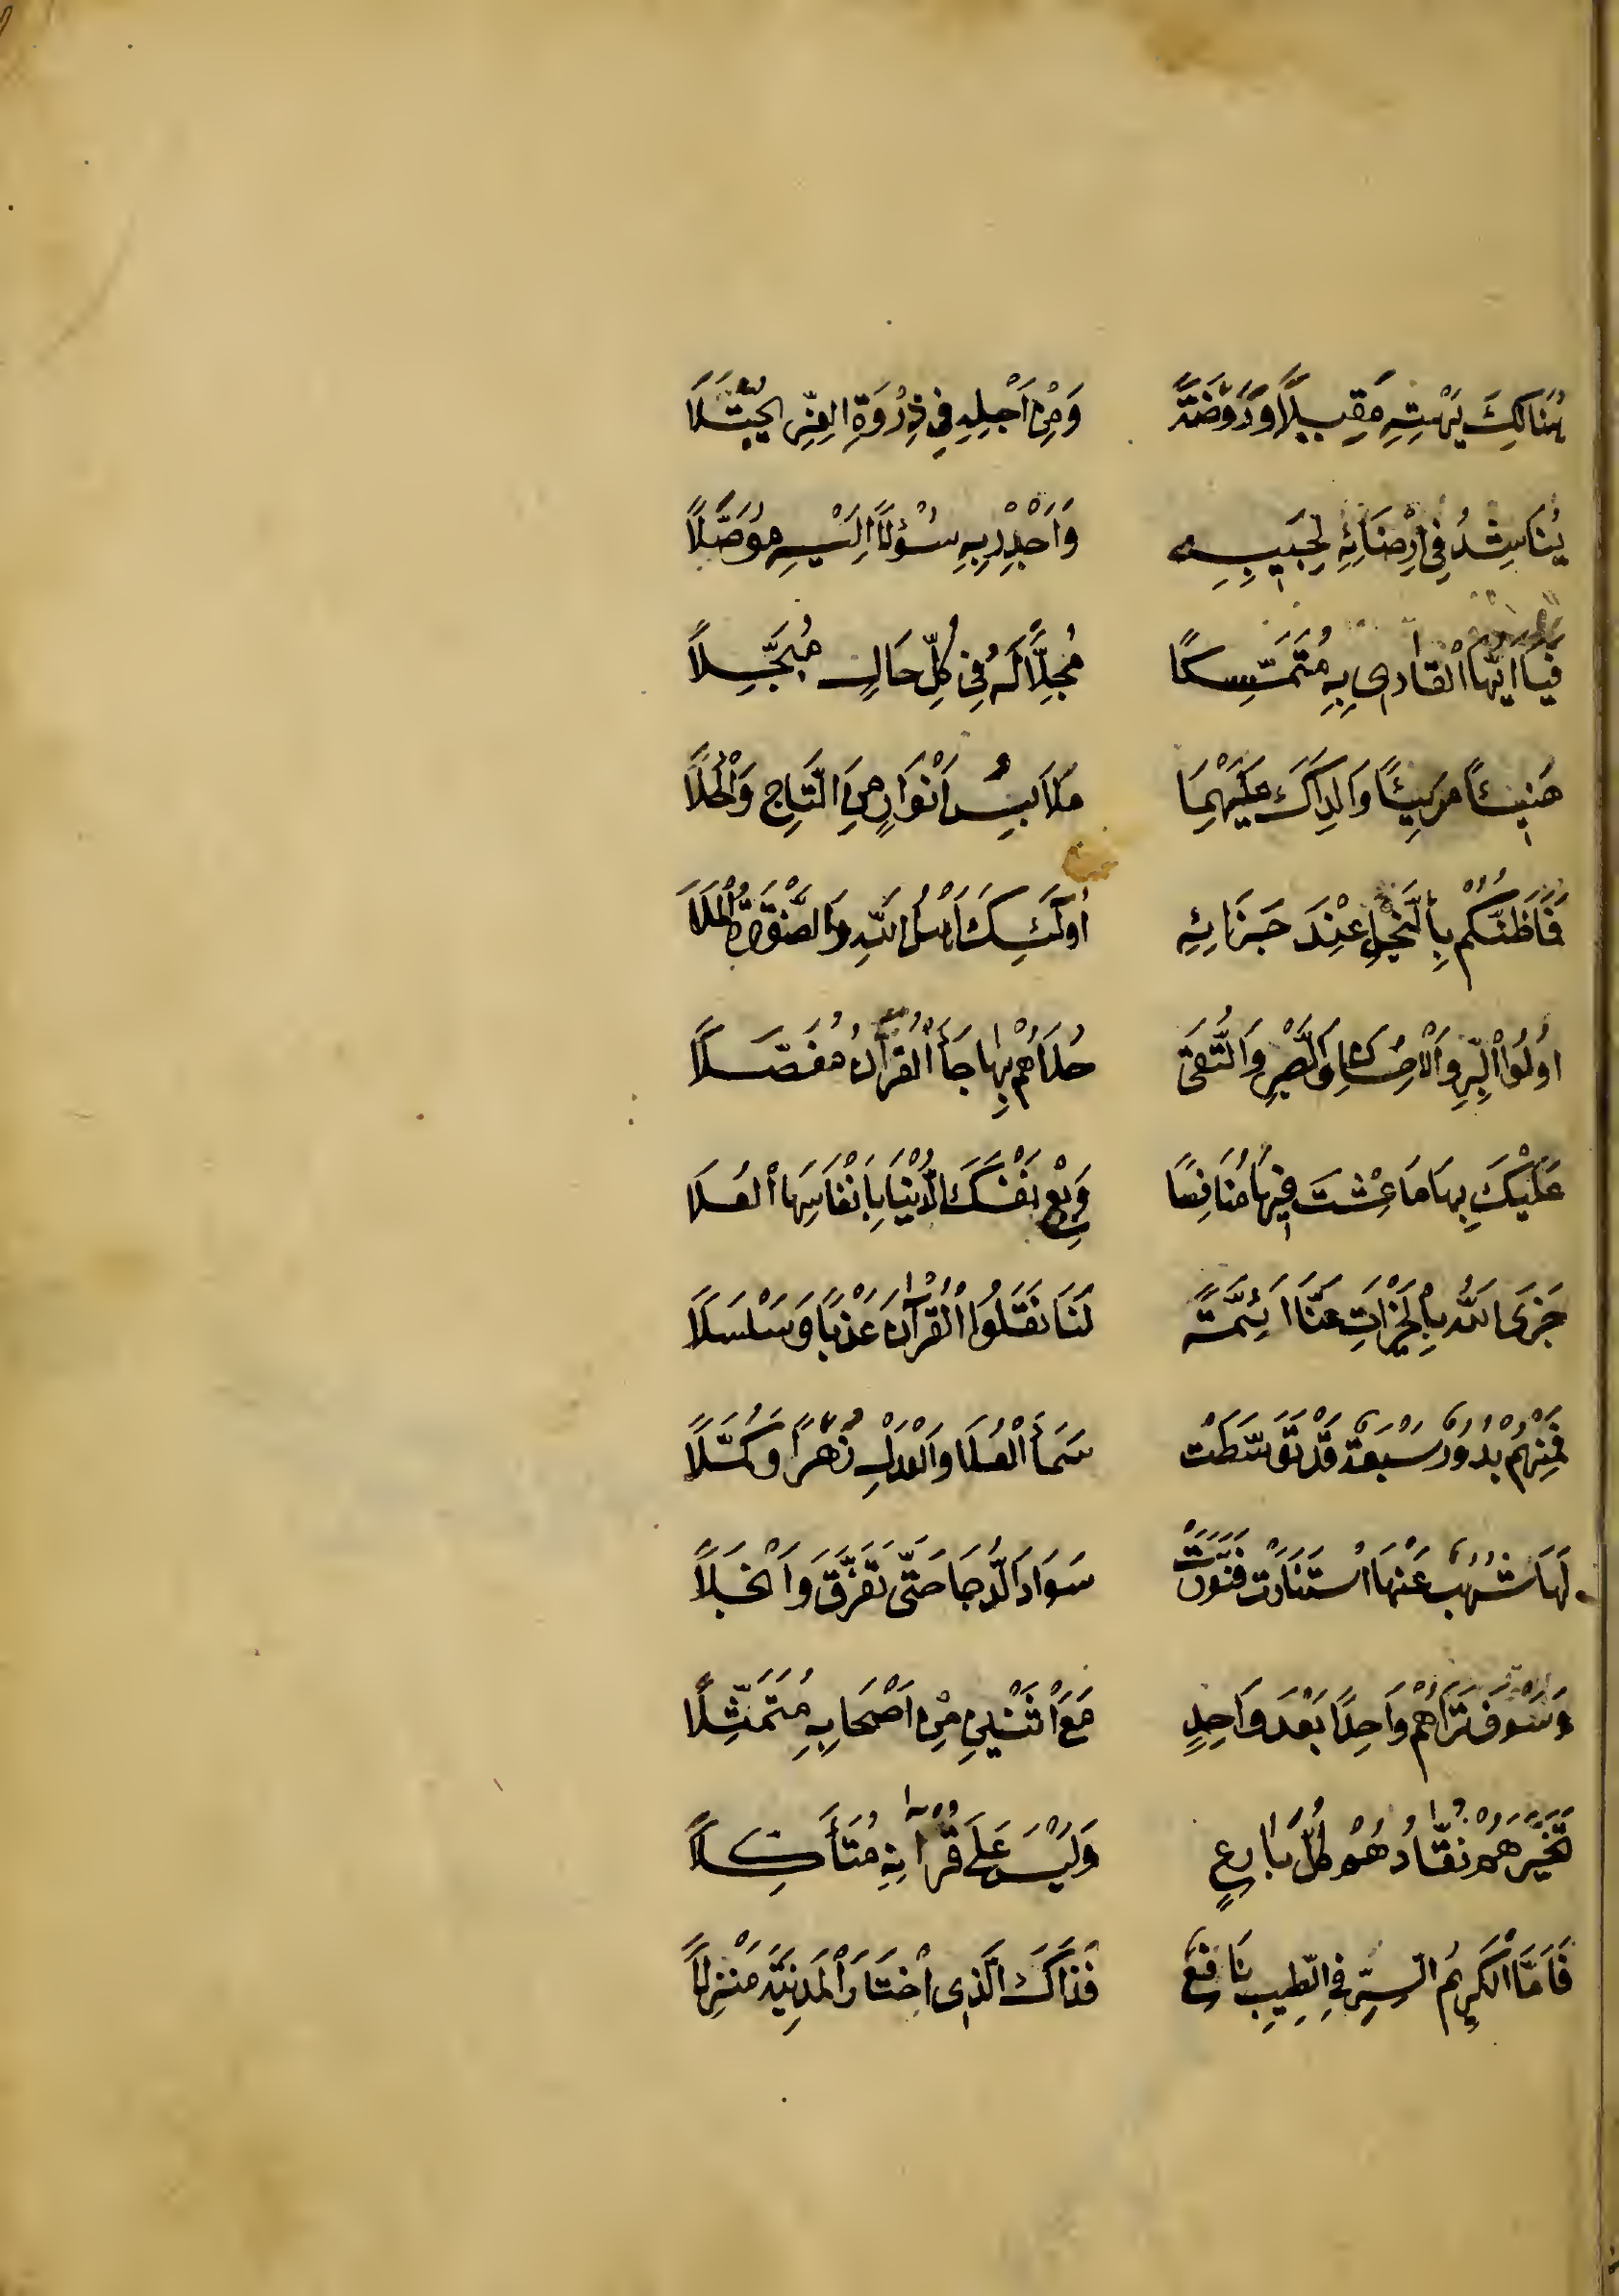 هُنَالِكَ يَهْنِيهِ مَقِيلًا وَرَوْضَةً وَمِنْ أَجْلِهِ فِي ذِرْوَةِ الْعِزِّ يُجْتَلَا
يُنَاشِدُ فِي إِرْضَائِهِ لِحَبِيبِهِ وَأَجْدِرْ بِهِ سُؤْلًا إِلَيْهِ مُوَصَّلًا
فَيَا أَيُّهَا الْقَارِي بِهِ مُتَمَسِّكًا مُجِلًّا لَهُ فِي كُلِّ حَالٍ مُبَجِّلًا
هَنِيئًا مَرِيئًا وَالِدَاكَ عَلَيْهِمَا مَلَابِسُ أَنْوَارٍ مِنَ التَّاجِ وَالْحُلَا
فَمَا ظَنُّكُمْ بِالنَّجْلِ عِنْدَ جَزَائِهِ أُولَئِكَ أَهْلُ اللَّهِ وَالصَّفْوَةُ الْمَلَا
أُولُوا الْبِرِّ وَالْإِحْسَانِ وَالصَّبْرِ وَالتُّقَى حُلَاهُمْ بِهَا جَاءَ الْقُرْآنُ مُفَصَّلًا
عَلَيْكَ بِهَا مَا عِشْتَ فِيهَا مُنَافِسًا وَبِعْ نَفْسَكَ الدُّنْيَا بِأَنْفَاسِهَا الْعُلَا
جَزَى اللَّهُ بِالْخَيْرَاتِ عَنَّا أَئِمَّةً لَنَا نَقَلُوا الْقُرْآنَ عَذْبًا وَسَلْسَلَا
فَمِنْهُمْ بُدُورٌ سَبْعَةٌ قَدْ تَوَسَّطَتْ سَمَاءَ الْعُلَا وَالْعَدْلِ زُهْرًا وَكُمَّلًا
لَهَا شُهُبٌ عَنْهَا اسْتَنَارَتْ فَنَوَّرَتْ سَوَادَ الدُّجَا حَتَّى تَفَرَّقَ وَانْجَلَا
وَسَوْفَ تَرَاهُمْ وَاحِدًا بَعْدَ وَاحِدٍ مَعَ اثْنَيْنِ مِنْ أَصْحَابِهِ مُتَمَثِّلًا
تَخَيَّرَهُمْ نُقَّادُهُمْ كُلَّ بَارِعٍ وَلَيْسَ عَلَى قُرْآنِهِ مُتَأَكِّلًا
فَأَمَّا الْكَرِيمُ السِّرِّ فِي الطِّيبِ نَافِعٌ فَذَاكَ الَّذِي اخْتَارَ الْمَدِينَةَ مَنْزِلًا